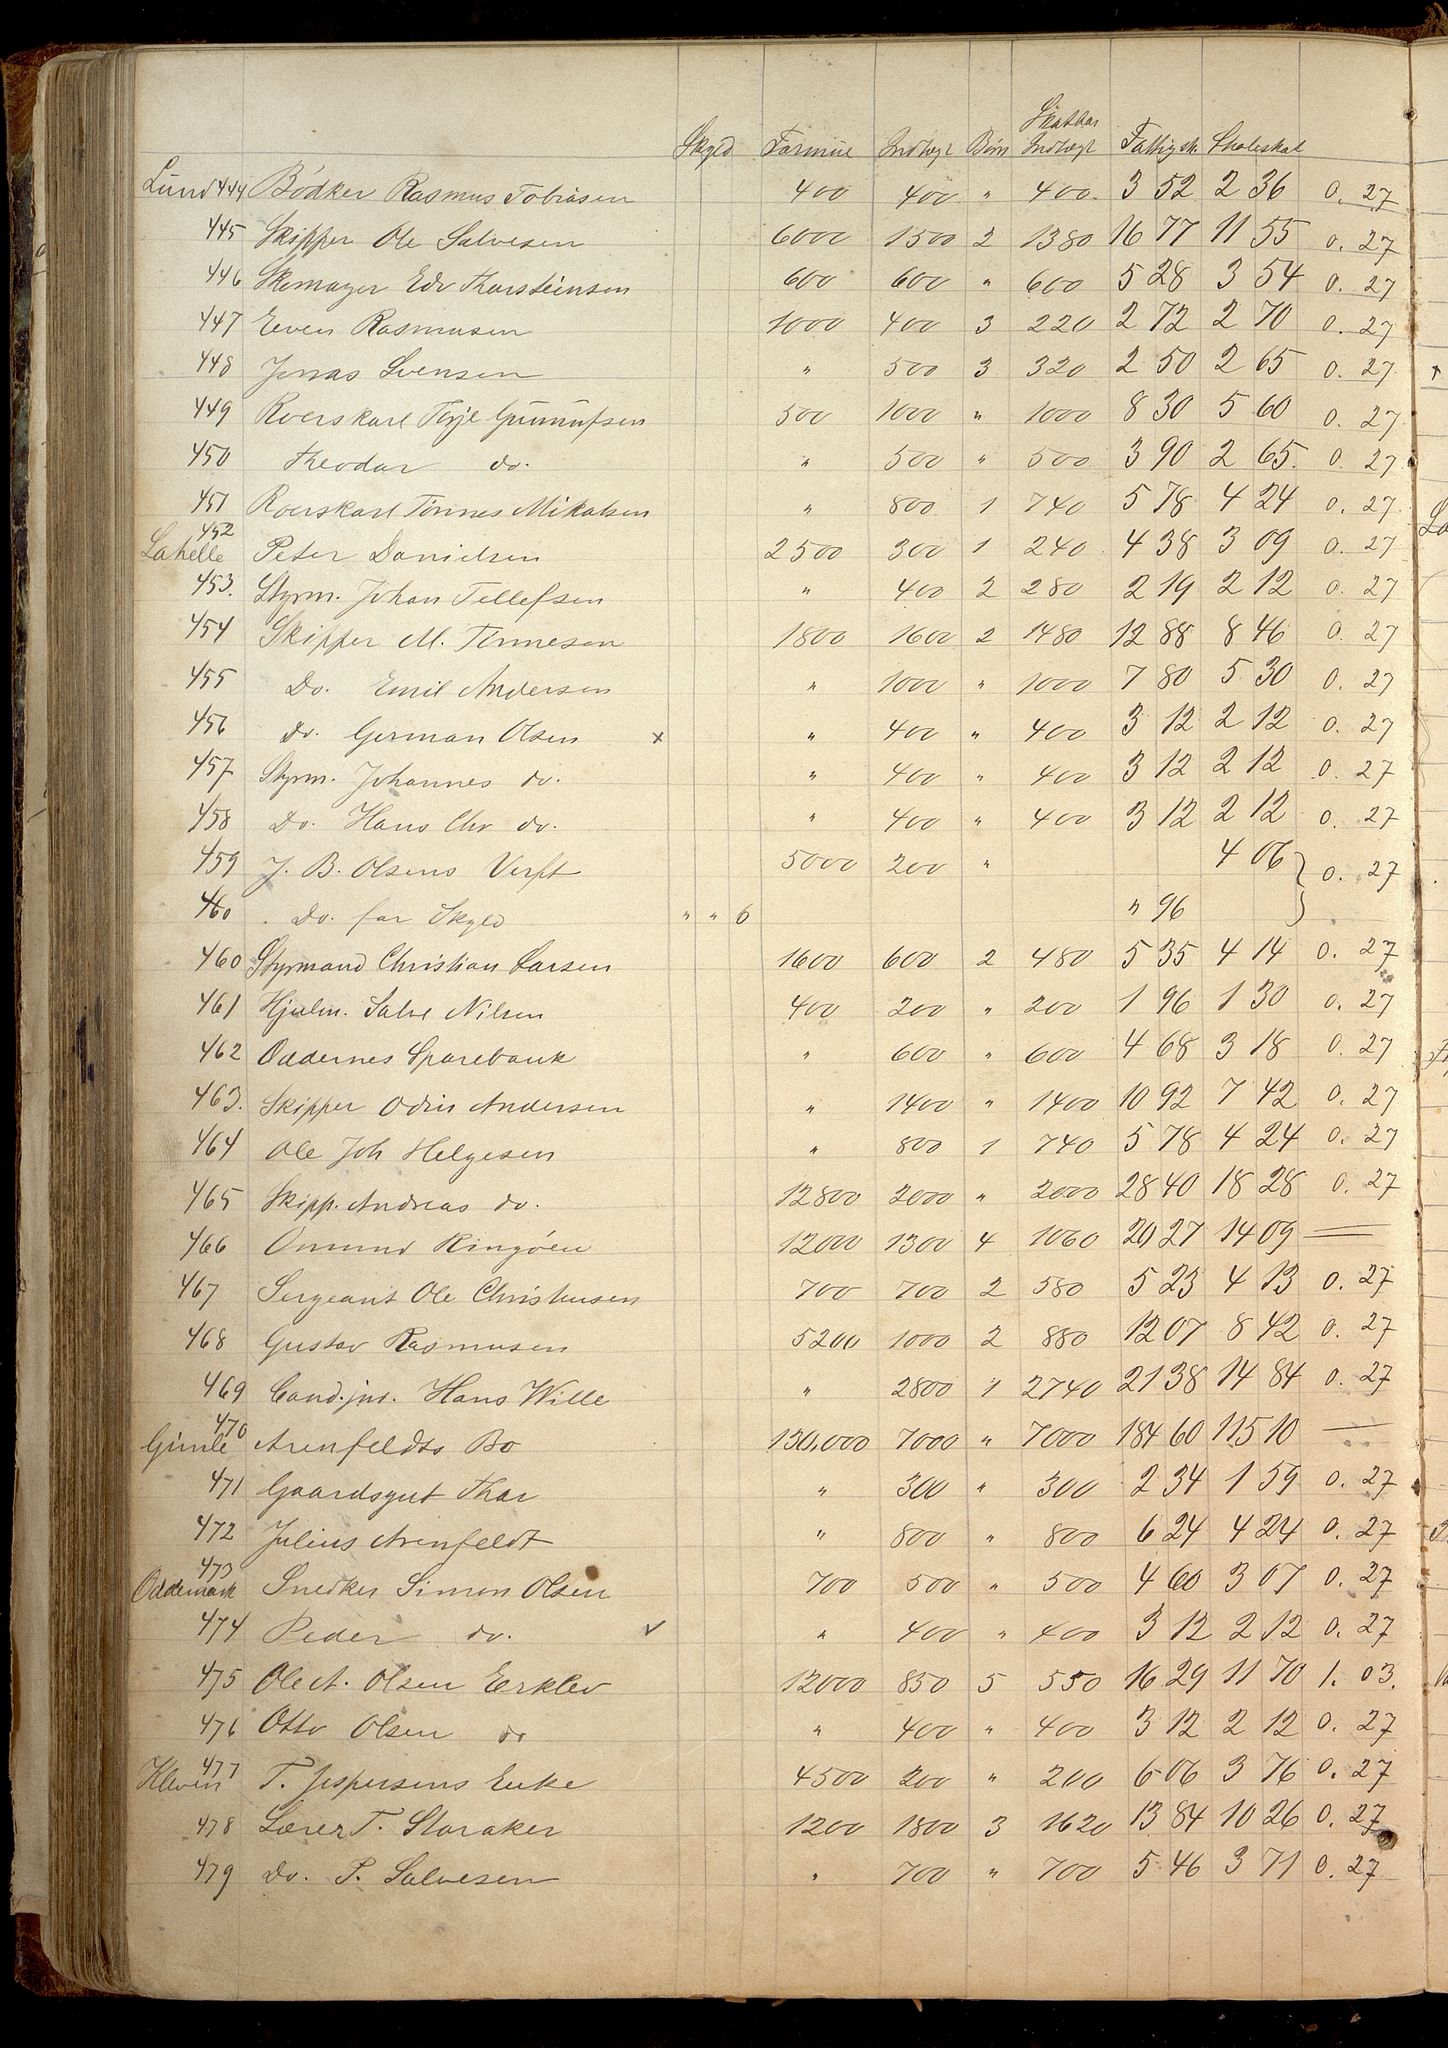 Skyld Formue Indtægt Børn Skatbar Indtægt Fattigsk. Skoleskat
Lund 444 Bödker Rasmus Tobiasen 400 400 " 400. 3 52 2 36 0. 27
445 Skipper Ole Salvesen 6000 1500 2 1380 16 77 11 55 0. 27
446 Skomager Edv Thorsteinsen 600 600 " 600 5 28 3 54 0. 27
447 Even Rasmusen 1000 400 3 220 2 72 2 70 0. 27
448 Jonas Svensen " 500 3 320 2 50 2 65 0. 27
449 Roerskarl Terje Gunnufsen 500 1000 " 1000 8 30 5 60 0. 27
450 Theodor do. " 500 " 500 3 90 2 65. 0. 27
451 Roerskarl Tönnes Mikalsen " 800 1 740 5 78 4 24 0. 27
Lahelle 452 Peter Danielsen 2500 300 1 240 4 38 3 09 0. 27
453. Styrm. Johan Tellefsen " 400 2 280 2 19 2 12 0. 27
454 Skipper M. Tönnesen 1800 1600 2 1480 12 88 8 46 0. 27
455 Do. Emil Andersen " 1000 " 1000 7 80 5 30 0. 27
456 Do. German Olsen x " 400 " 400 3 12 2 12 0. 27
457 Styrm. Johannes do. " 400 " 400 3 12 2 12 0. 27
458 Do. Hans Chr do. " 400 " 400 3 12 2 12 0. 27
459 J. B. Olsens Verft 5000 200 " 4 06 } 0. 27
460 . Do. for Skyld " " 6 " 96
460 Styrmand Christian Larsen 1600 600 2 480 5 35 4 14 0. 27
461 Hjulm. Salve Nilsen 400 200 " 200 1 96 1 30 0. 27
462 Oddernes Sparebank " 600 " 600 4 68 3 18 0. 27
463. Skipper Odin Andersen " 1400 " 1400 10 92 7 42 0. 27
464 Ole Joh Helgesen " 800 1 740 5 78 4 24 0. 27
465 Skipp. Andreas do. 12800 2000 " 2000 28 40 18 28 0. 27
466 Omund Ringöen 12000 1300 4 1060 20 27 14 09 —
467 Sergeant Ole Christensen 700 700 2 580 5 23 4 13 0. 27
468 Gustav Rasmusen 5200 1000 2 880 12 07 8 42 0. 27
469 Cand. jur. Hans Wille " 2800 1 2740 21 38 14 84 0. 27
Gimle 470 Arenfeldts Bo 130,000 7000 " 7000 184 60 115 10 —
471 Gaardsgut Thor " 300 " 300 2 34 1 59 0. 27
472 Julius Arenfeldt " 800 " 800 6 24 4 24 0. 27
Oddemark 473 Snedker Simon Olsen 700 500 " 500 4 60 3 07 0. 27
474 Peder do. v " 400 " 400 3 12 2 12 0. 27
475 Ole A. Olsen Erklev 12000 850 5 550 16 29 11 70 1. 03.
476 Otto Olsen do " 400 " 400 3 12 2 12 0. 27
Kleven 477 T. Jespersens Enke 4500 200 " 200 6 06 3 76 0. 27
478 Lærer T. Storaker 1200 1800 3 1620 13 84 10 26 0. 27
479 Do. P. Salvesen " 700 " 700 5 46 3 71 0. 27